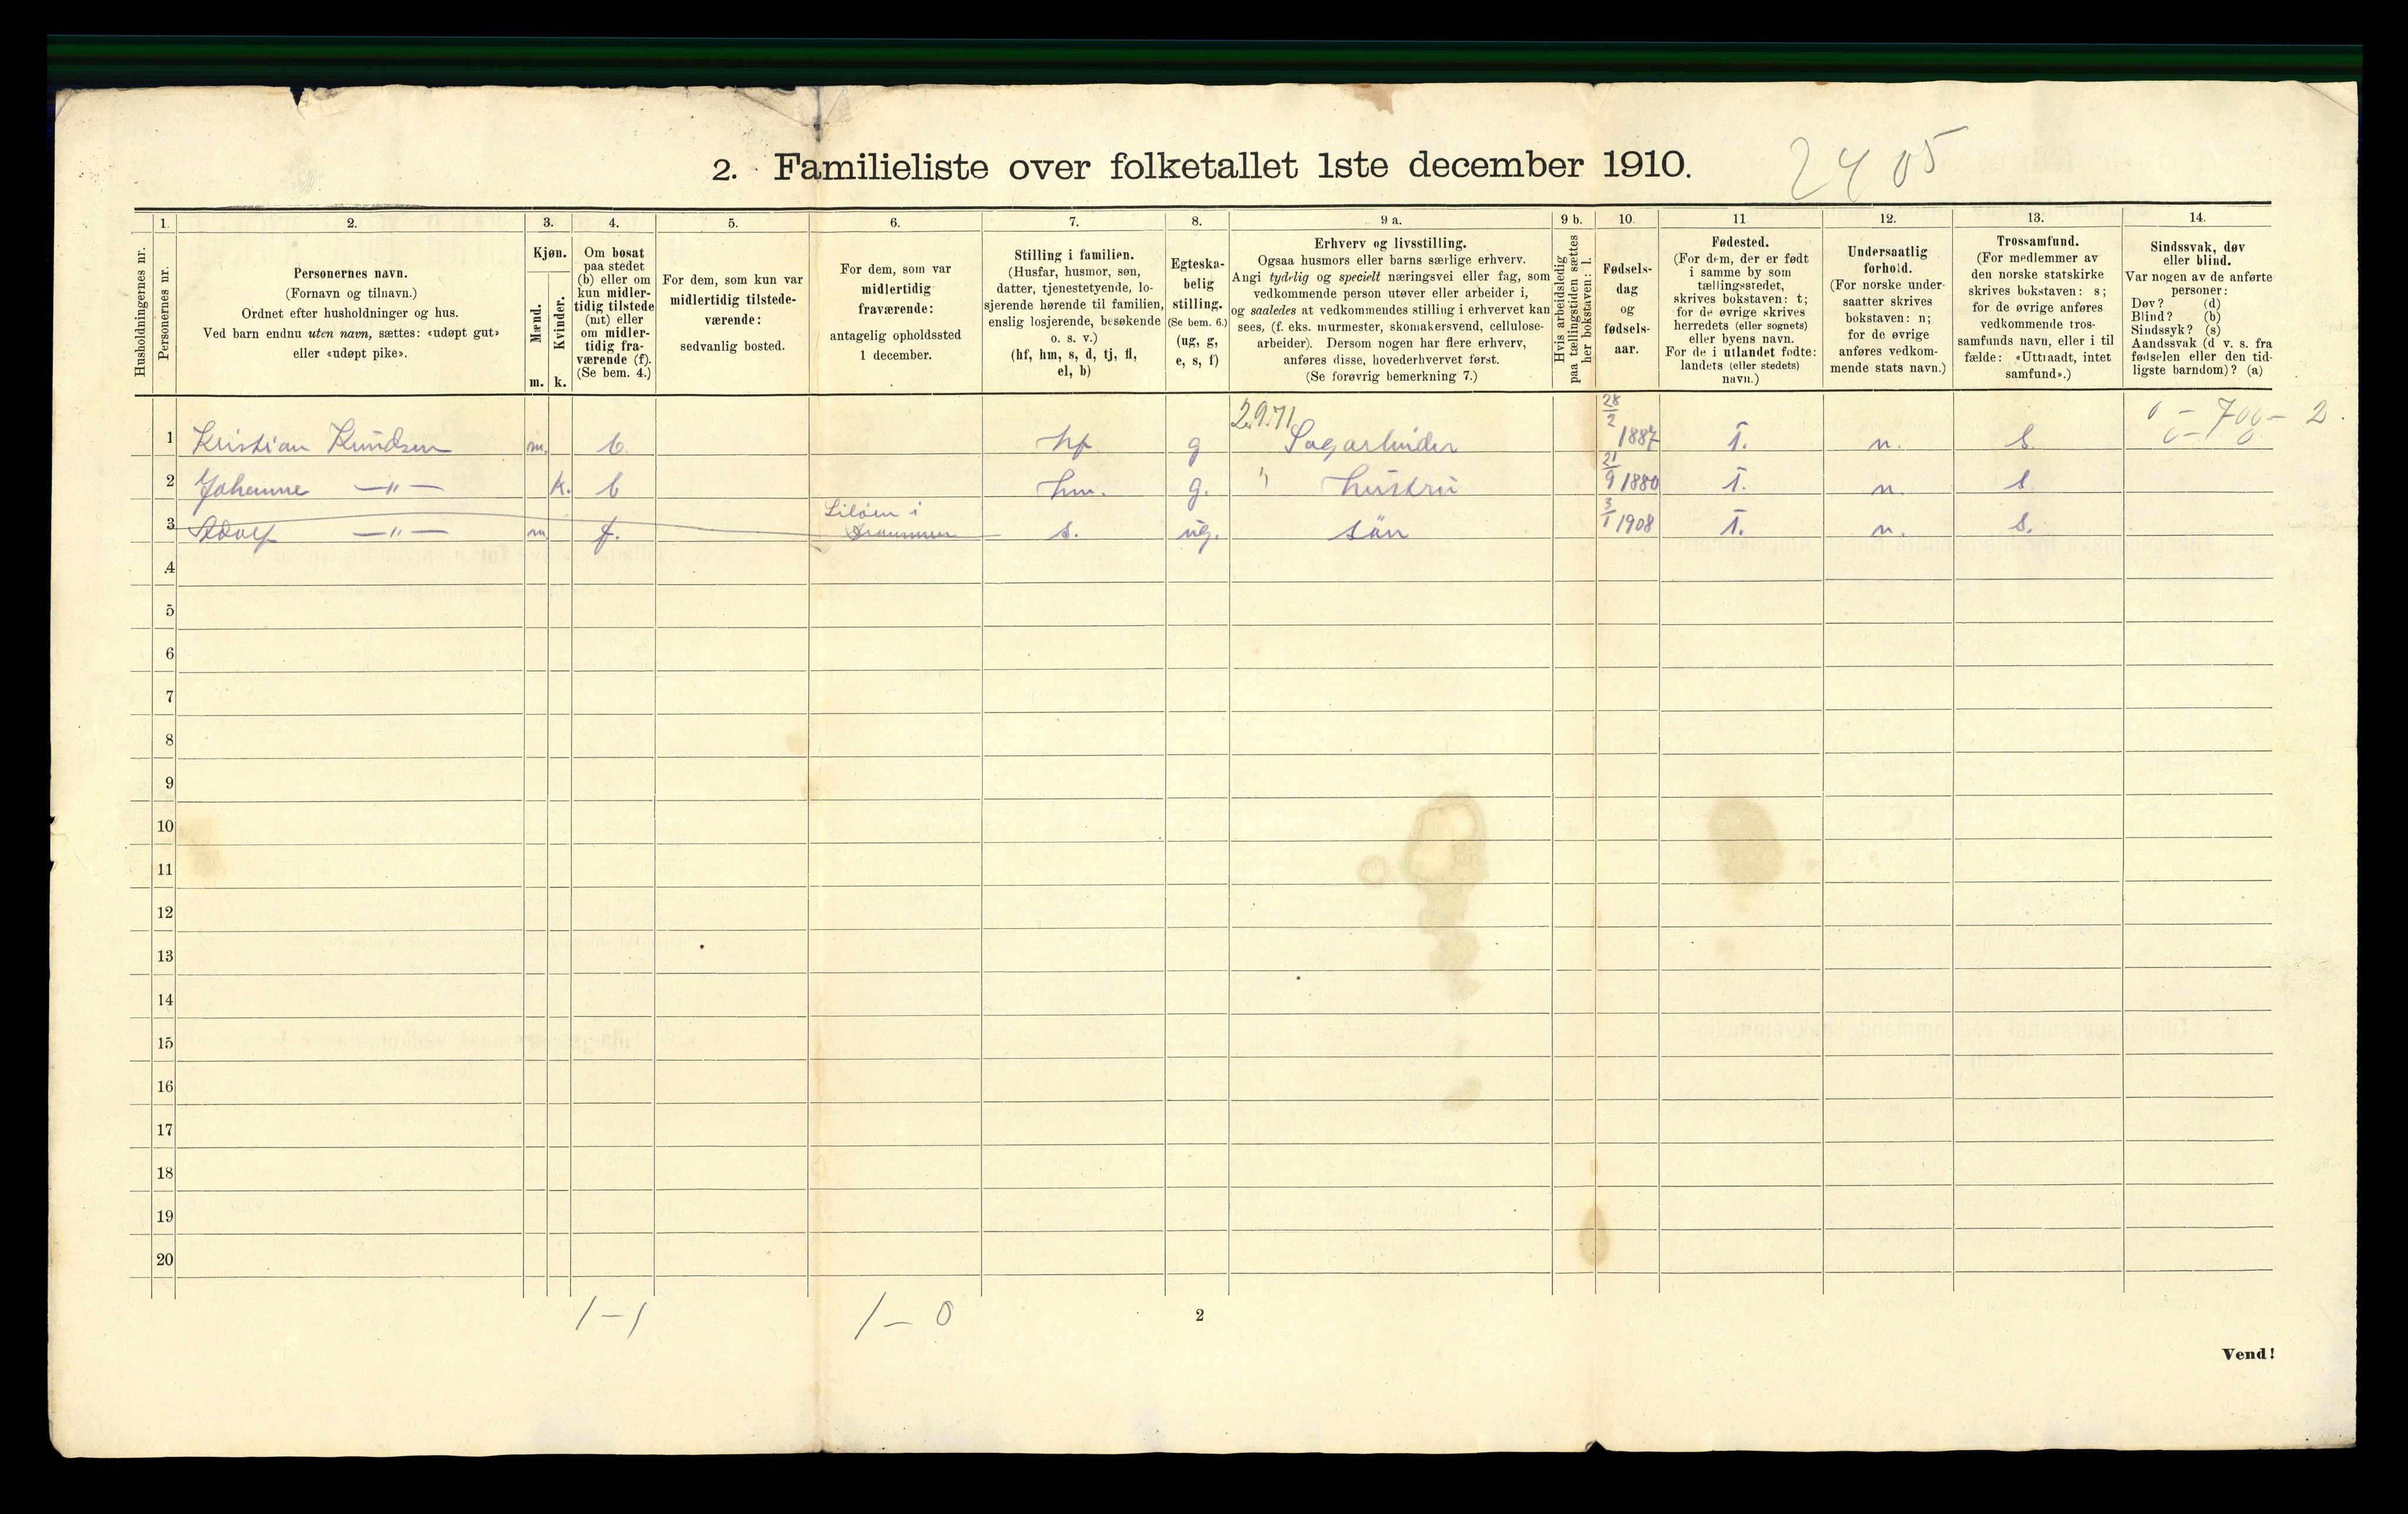 2. Familieliste over folketallet 1ste december 1910. 2405
Husholdningernes nr.
1.
Personernes nr.
2.
Personernes navn.
(Fornavn og tilnavn.)
Ordnet efter husholdninger og hus.
Ved barn endnu uten navn, sættes: «udøpt gut»
eller «udøpt pike».
3.
Kjøn.
Mænd.
m.
Kvinder.
k.
4.
Om bosat
paa stedet
(b) eller om
kun midler-
tidig tilstede
(mt) eller
om midler-
tidig fra-
værende (f).
(Se bem. 4.)
5.
For dem, som kun var
midlertidig tilstede-
værende:
sedvanlig bosted.
6.
For dem, som var
midlertidig
fraværende:
antagelig opholdssted
1 december.
7.
Stilling i familien.
(Husfar, husmor, søn,
datter, tjenestetyende, lo-
sjerende hørende til familien,
enslig losjerende, besøkende
o. s. v.)
(hf, hm, s, d, tj, fl,
el, b)
8.
Egteska-
belig
stilling.
(Se bem. 6.)
(ug, g,
e, s, f)
9 a.
Erhverv og livsstilling.
Ogsaa husmors eller barns særlige erhverv.
Angi tydelig og specielt næringsvei eller fag, som
vedkommende person utøver eller arbeider i,
og saaledes at vedkommendes stilling i erhvervet kan
sees, (f. eks. murmester, skomakersvend, cellulose-
arbeider). Dersom nogen har flere erhverv,
anføres disse, hovederhvervet først.
(Se forøvrig bemerkning 7.)
9 b.
Hvis arbeidsledig
paa tællingstiden sættes
her bokstaven: l.
10.
Fødsels-
dag
og
fødsels-
aar.
11
Fødested.
(For dem, der er født
i samme by som
tællingsstedet,
skrives bokstaven: t;
for de øvrige skrives
herredets (eller sognets)
eller byens navn.
For de i utlandet fødte:
landets (eller stedets)
navn.)
12.
Undersaatlig
forhold.
(For norske under-
saatter skrives
bokstaven: n;
for de øvrige
anføres vedkom-
mende stats navn.)
13.
Trossamfund.
(For medlemmer av
den norske statskirke
skrives bokstaven: s;
for de øvrige anføres
vedkommende tros-
samfunds navn, eller i til
fælde: «Uttraadt, intet
samfund».)
14.
Sindssvak, døv
eller blind.
Var nogen av de anførte
personer:
Døv? (d)
Blind? (b)
Sindssyk? (s)
Aandssvak (d v. s. fra
fødselen eller den tid-
ligste barndom)? (a)
1 Kristian Knudsen m. b. hf g 2971 Sagarbeider 28/2 1887 T. n. S. 0 – 700 – 2
2 Johanne —"— K. b hm. g. " hustru 21/9 1880 T. n. S
3 Adolf —"— m f. i s. ug. sön 3/1 1908 T. n. S.
4
5
6
7
8
9
10
11
12
13
14
15
16
17
18
19
20
1–1 1–0 2
Vend!